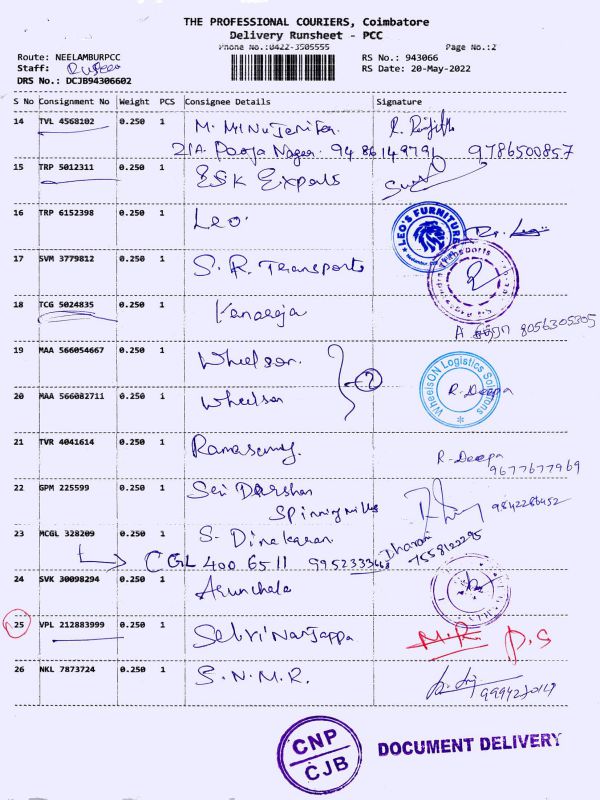 THE PROFESSIONAL COURIERS, Coimbatore
Delivery Runsheet - PCC
Phone No.:0422-3505555
Page No.:2
Route: NEELAMBURPCC
Staff:
DRS No.: DCJB94306602
RS No.: 943066
RS Date: 20-May-2022
S No Consignment No Weight PCS Consignee Details Signature
14 TVL 4568102 0.250 1 M.
21A. Pooja Nagar. 9486149791 9786500857
15 TRP 5012311 0.250 1 ESK Exports
16 TRP 6152398 0.250 1 Leo.
LEO'S FURNITURE
17 SVM 3779812 0.250 1 S.R. Transports
18 TCG 5024835 0.250 1
A 8056305305
19 MAA 566054667 0.250 1 Wheelson.
2
WheelsON Logistics Solutions
20 MAA 566082711 0.250 1 Wheelson
R. Deepa
21 TVR 4041614 0.250 1 Ramasamy.
R. Deepa
9677677969
22 GPM 225599 0.250 1 Sri Darshan
Spinning Mills
23 MCGL 328209 0.250 1 S. Dinakaran
CGL 400 6511
Dharani
7558122295
24 SVK 30098294 0.250 1 Arunchala
25 VPL 212883999 0.250 1
M.R. D.S
26 NKL 7873724 0.250 1 S.N.M.R.
CNP
CJB
DOCUMENT DELIVERY